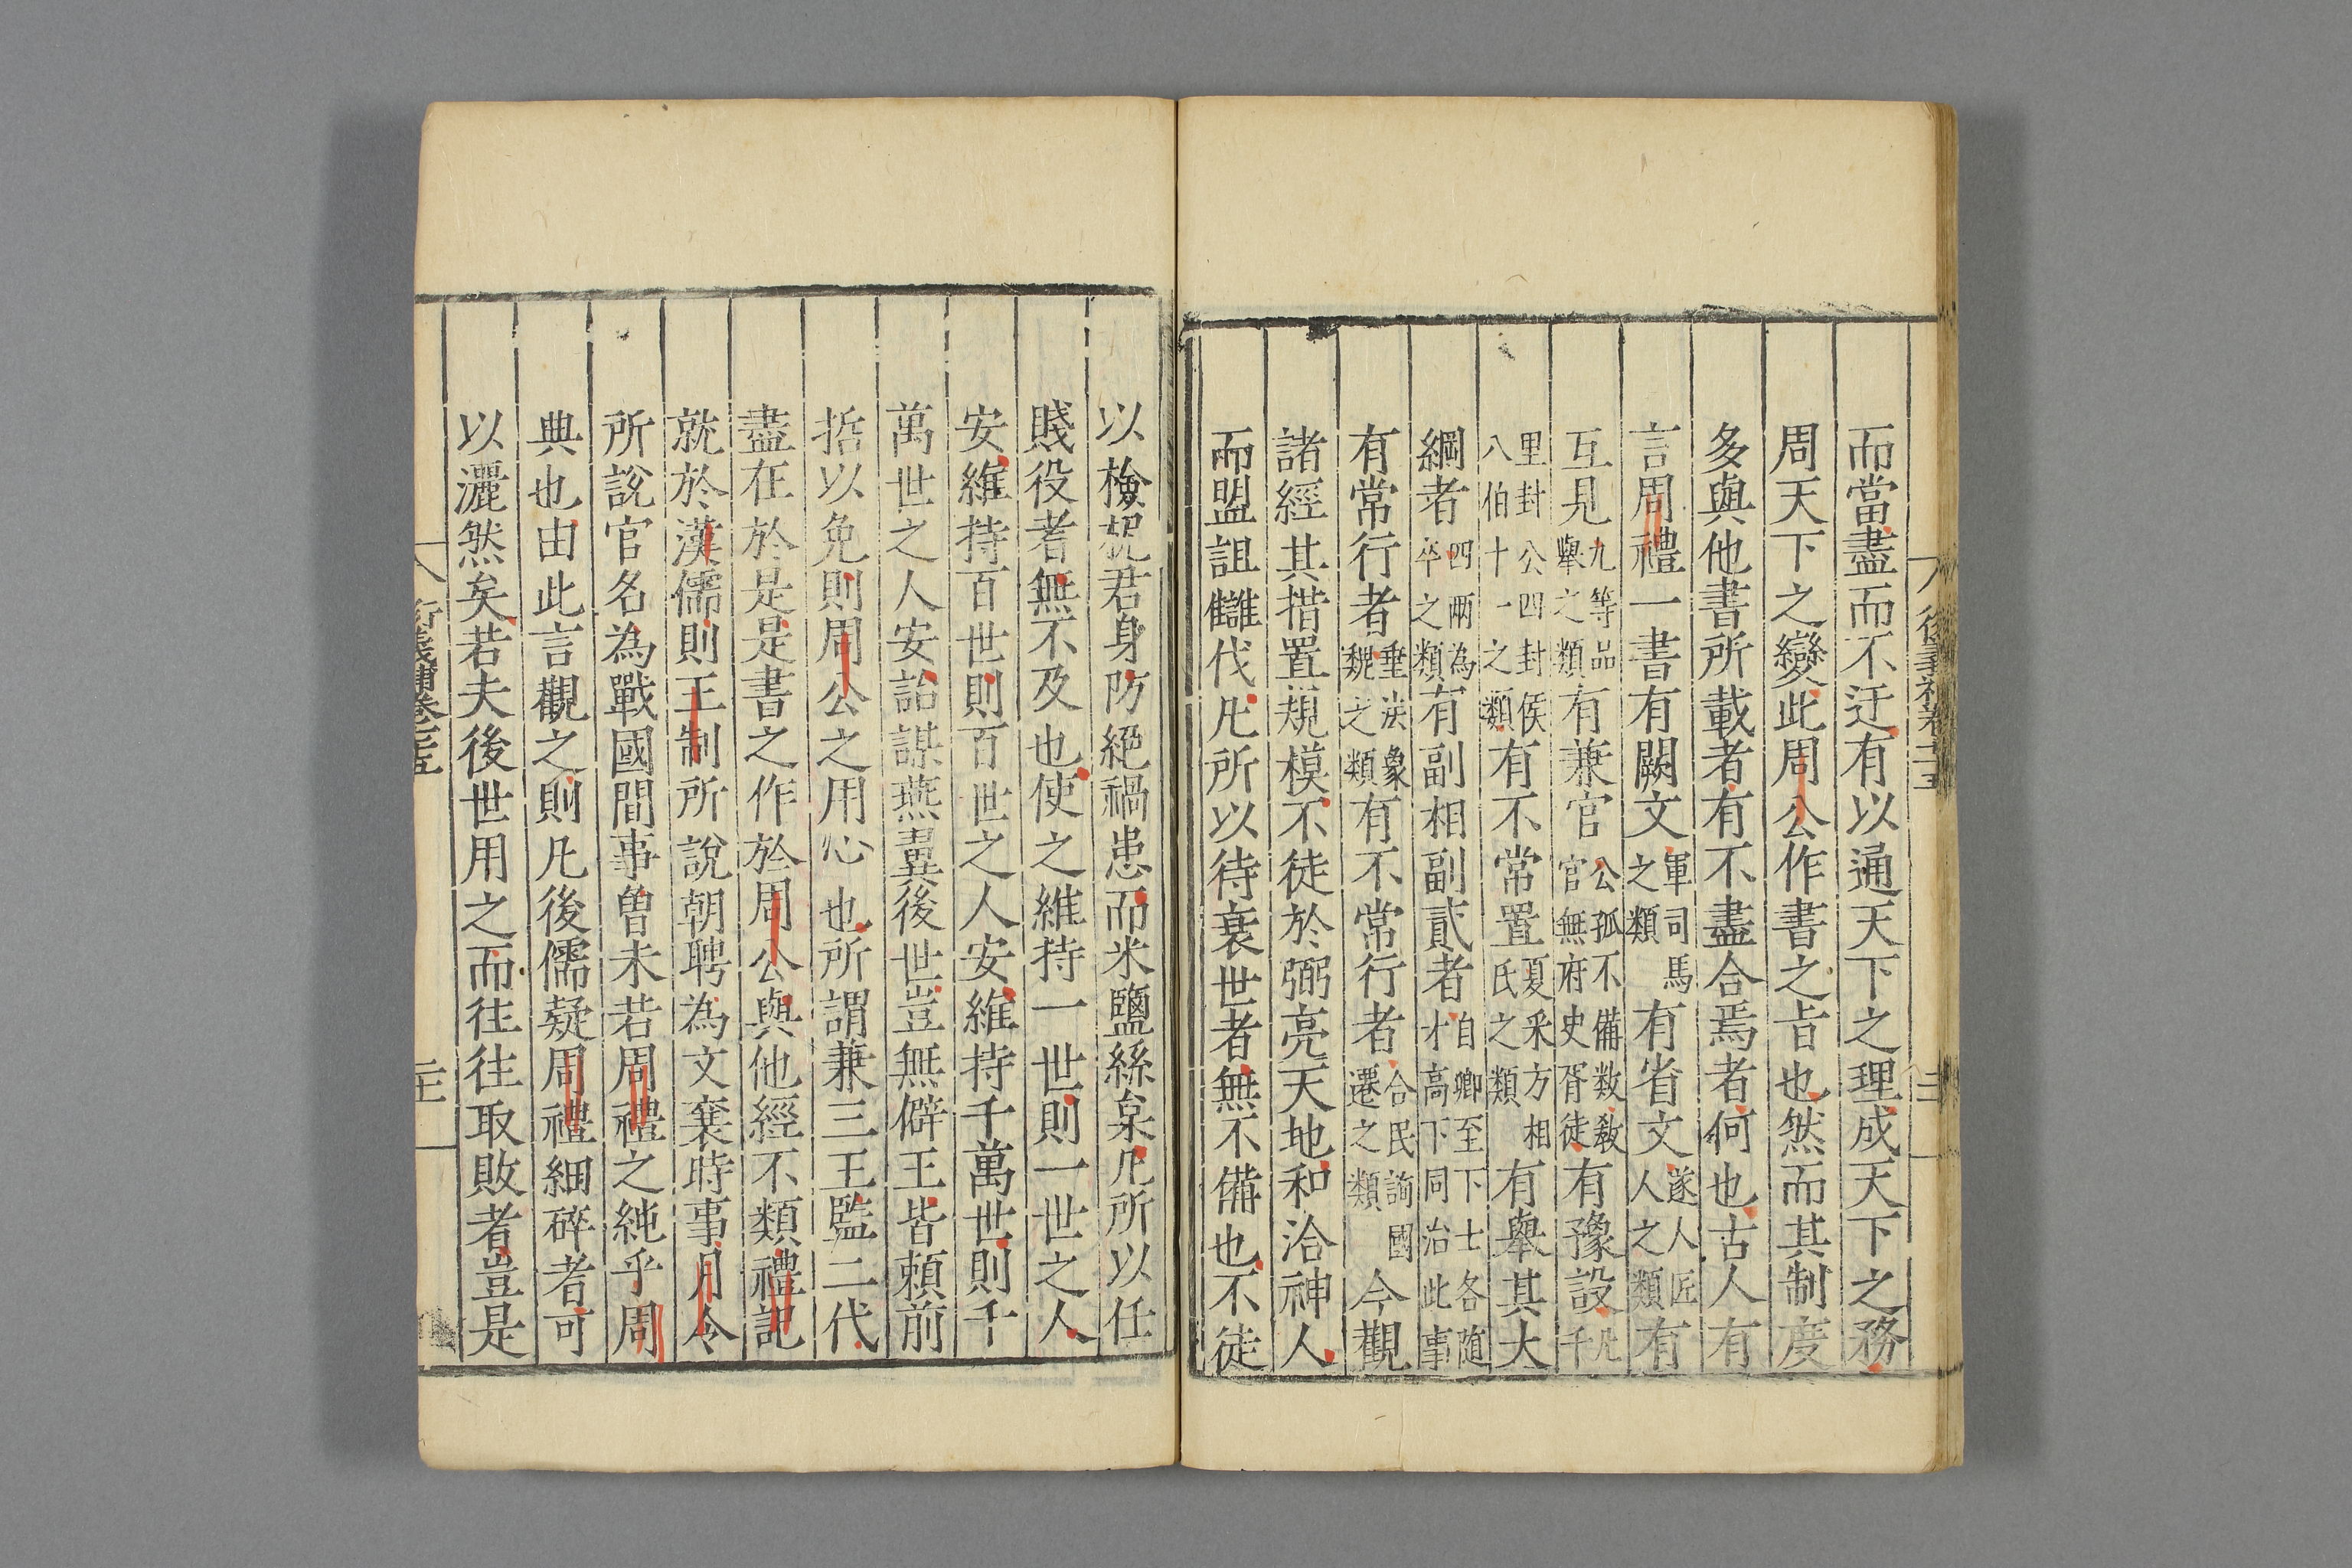 而當盡而不迂有以通天下之理成天下之務
周天下之變此周公作書之旨也然而其制度
多與他書所載者有不盡合焉者何也古人有
言周禮一書有闕文軍司馬之類有省文遂人匠人之類有
互見九等品舉之類有兼官公孤不備数敎官無府史胥徒有豫設凡千
里封公四封侯八伯十一之類有不常置夏采方相氏之類有舉其大
綱者四兩為卒之類有副相副貳者自卿至下士各随才高下同治此事
有常行者垂法象魏之類有不常行者合民詢國遷之類今觀
諸經其措置規模不徒於弼亮天地和洽神人
而盟詛讎伐凡所以待衰世者無不備也不徒
以檢柅君身防絕禍患而米鹽絲枲凡所以任
賤役者無不及也使之維持一世則一世之人
安維持百世則百世之人安維持千萬世則千
萬世之人安詒謀燕翼後世豈無僻王皆賴前
哲以免則周公之用心也所謂兼三王監二代
盡在於是是書之作於周公與他經不類禮記
就於漢儒則王制所說朝聘為文襄時事月令
所說官名為戰國間事曾未若周禮之純乎周
典也由此言觀之則凡後儒疑周禮細碎者可
以灑然矣若夫後世用之而往往取敗者豈是